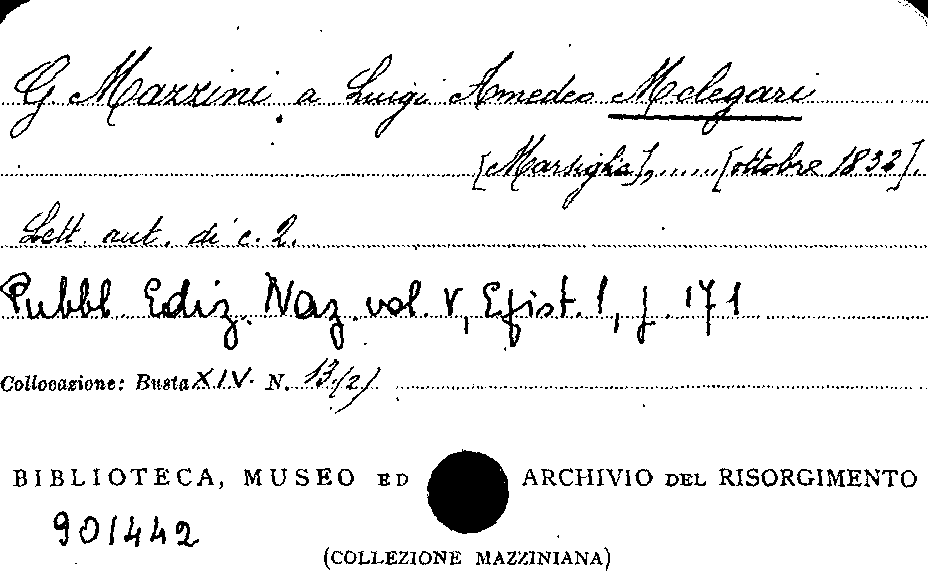 G. Mazzini a Luigi Amedeo Melegari
[Marsiglia], ...... [ottobre 1832].
Lett. aut. di c. 2.
Pubbl. Ediz. Naz. vol. V, Epist. I, p. 171
Collocazione: Busta XIV. N. 13(2)
BIBLIOTECA, MUSEO ED ARCHIVIO DEL RISORGIMENTO
901442
(COLLEZIONE MAZZINIANA)